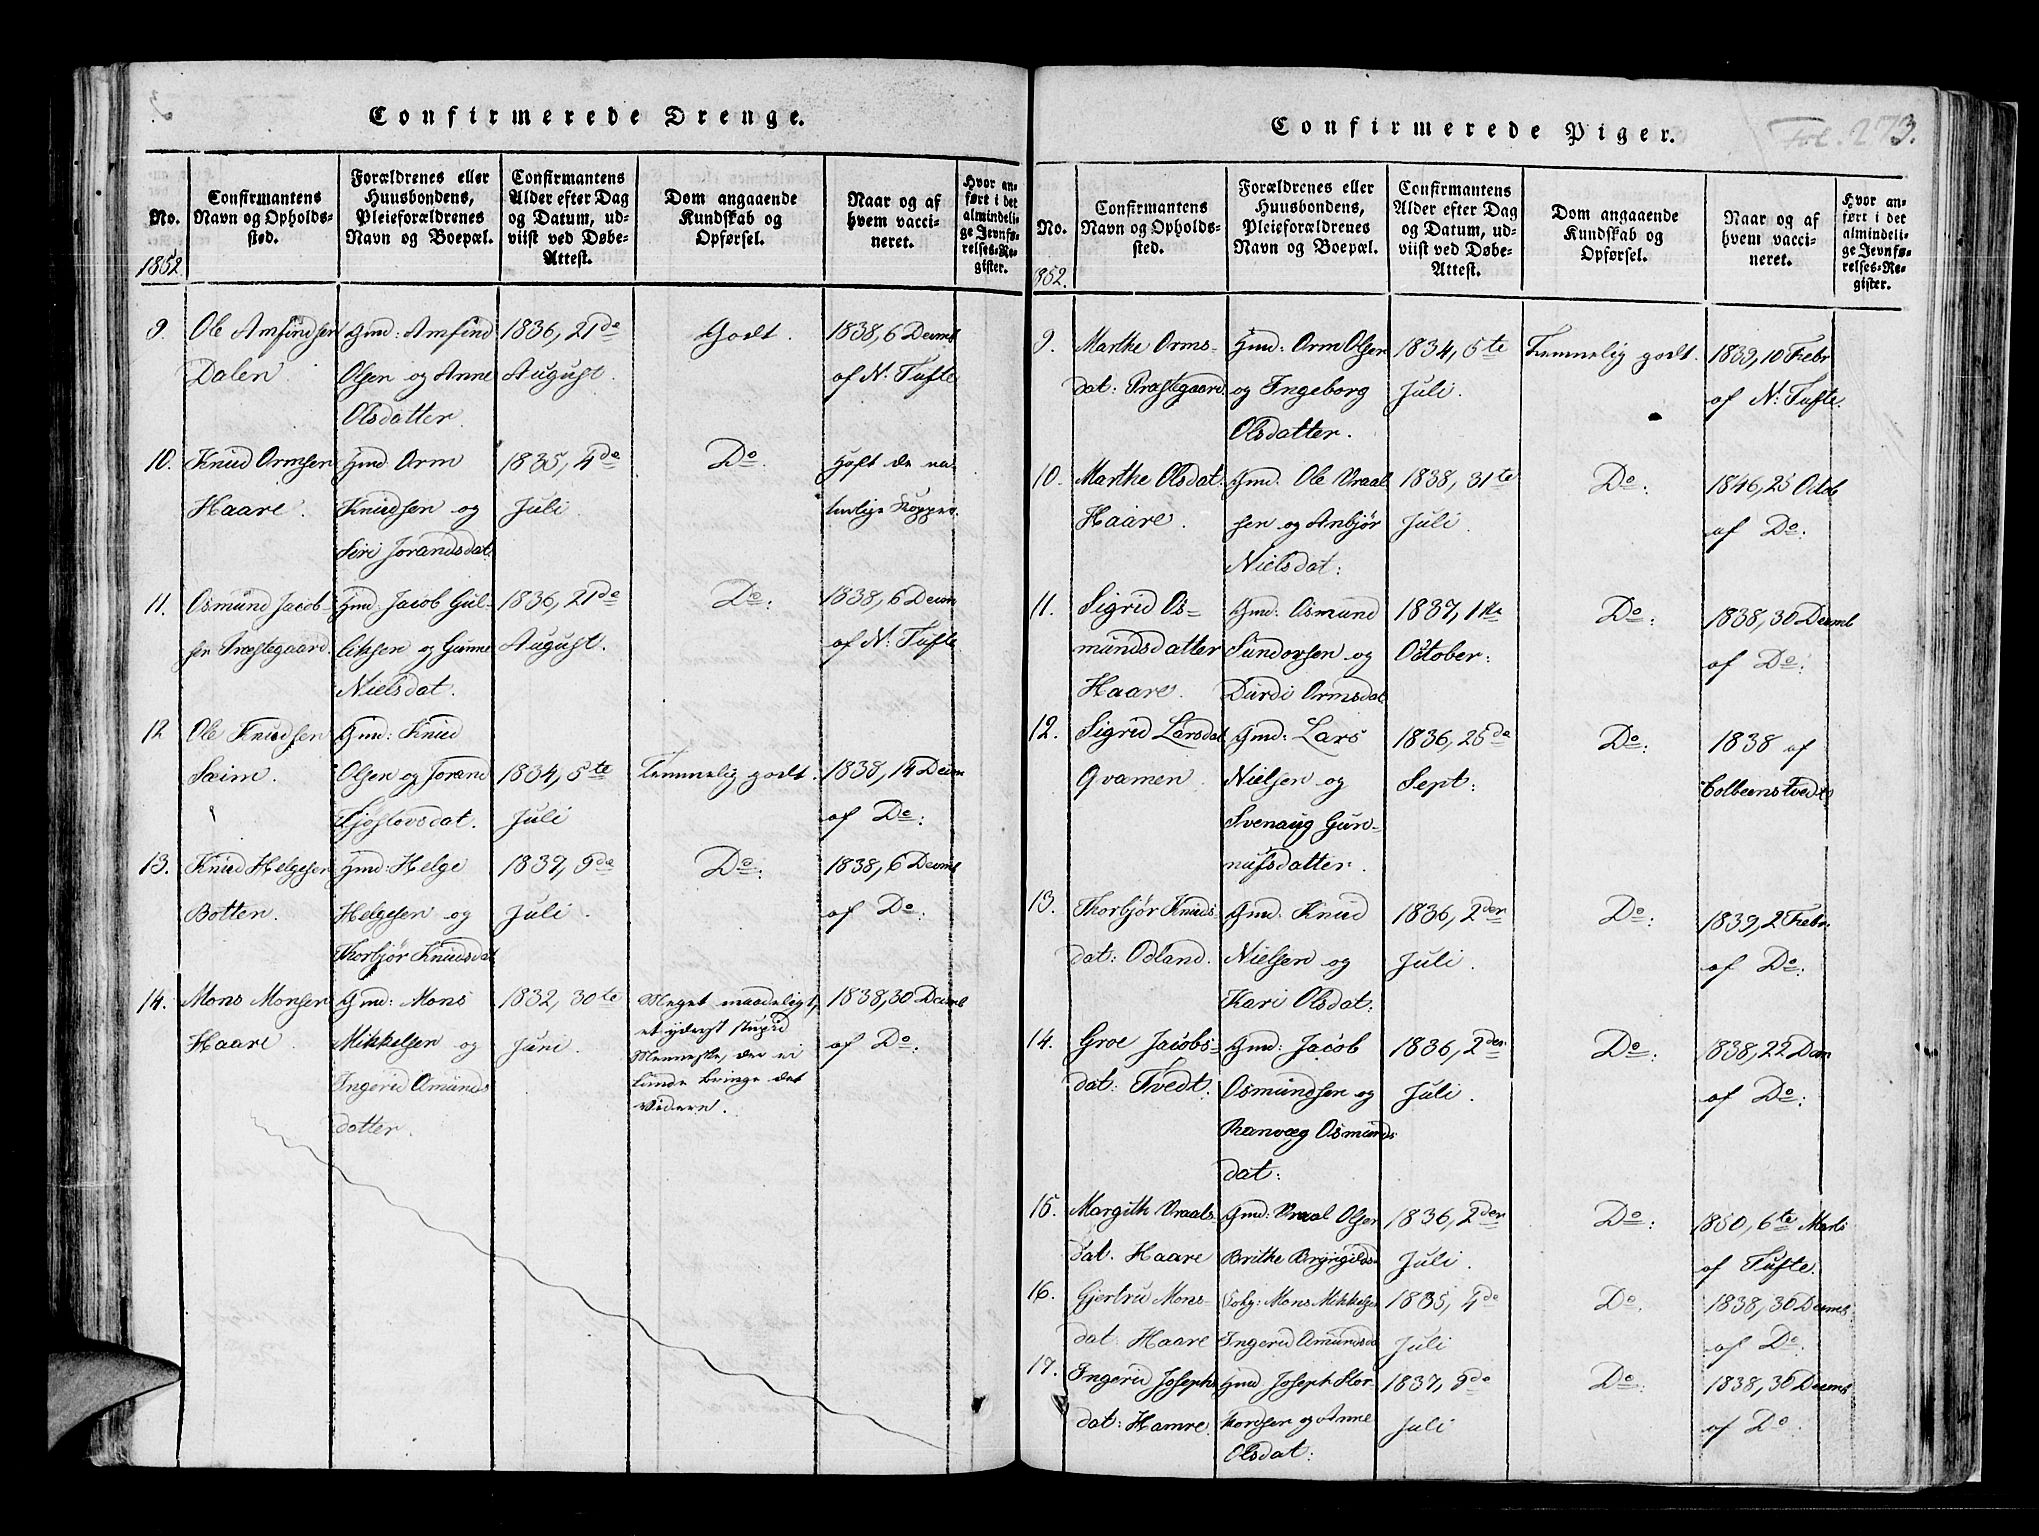 Confirmerede Drenge.
No. 1852.
Confirmantens Navn og Opholdssted.
Forældrenes eller Huusbondens, Pleieforældrenes Navn og Boepæl.
Confirmantens Alder efter Dag og Datum, udviist ved Døbe-Attest.
Dom angaaende Kundskab og Opførsel.
Naar og af hvem vaccineret.
Hvor anført i det almindelige Jevnførelses-Register.
9. Ole Amfindsen Gmd: Amfind 1836, 21de Godt. 1838, 6 Decmb
Dalen. Olsen og Anne August. af N: Tufte
Olsdatter.
10. Knud Ormsen Gmd Orm 1835, 4de Do. Haft de na-
Haare. Knudsen og Juli. turlige Kopper.
Siri Jorandsdat.
11. Osmund Jacob- Gmd: Jacob Gul- 1836, 21de Do: 1838, 6 Decm
sen Præstegaard. liksen og Gunne August. af N: Tufte
Nielsdat.
12 Ole Knudsen Gmd: Knud
Sæim. Olsen og Jorand 1834, 5te Temmelig godt. 1838, 14 Decm
Kjøstovsdat. Juli af Do:
13. Knud Helgesen Gmd: Helge 1837, 9de Do: 1838, 6 Decmb
Botten. Helgesen og Juli. af Do:
Thorbjør Knudsdat
14. Mons Monsen Gmd: Mons 1832, 30te Meget maadeligt, 1838, 30 Decmb
Haare. Mikkelsen og Juni. et yderst stupid af Do:
Ingerid Amunds Menneske, der ei
datter. kunde bringe det
videre.
Confirmerede Piger.
Fol. 273.
No. 1852.
Confirmantens Navn og Opholdssted.
Forældrenes eller Huusbondens, Pleieforældrenes Navn og Boepæl.
Confirmantens Alder efter Dag og Datum, udviist ved Døbe-Attest.
Dom angaaende Kundskab og Opførsel.
Naar og af hvem vaccineret.
Hvor anført i det almindelige Jevnførelses-Register.
9. Marthe Orms- Gmd: Orm Olsen 1834, 5te Temmelig godt. 1839, 10 Febr
dat: Præstegaard. og Ingeborg Juli. af N: Tufte.
Olsdatter.
10. Marthe Olsdat. Gmd. Ole Vraal 1838, 31te Do: 1846, 25 Octob
Haare. sen og Anbjør Juli. af Do:
Nielsdat:
11. Sigrid Os- Gmd: Osmund 1837, 1ste Do: 1838, 30 Decmb
mundsdatter Sundovsen og October: af Do:
Haare. Durdi Ormsdat
12. Sigrid Larsdat Gmd: Lars 1836, 25de Do: 1838 af
Qvamen. Nielsen og Sept: Tvedt
Svenaug Gun-
nufsdatter.
13. Thorbjør Knuds- Gmd: Knud 1836, 2den Do: 1839, 2 Febr.
dat: Odland. Nielsen og Juli. af Do:
Kari Olsdat:
14. Groe Jacobs- Gmd: Jacob 1836, 2den Do: 1838, 22 Dec
dat: Tvedt. Osmundsen og Juli. af Do:
Ranvæg Osmunds
dat:
15. Margith Vraals- Gmd: Vraal Olsen 1836, 2den Do: 1850, 6te Marts
dat. Haare Brithe Juli. af Tufte.
16. Gjertru Mons- Mons Mikkelsen 1835, 4de Do. 1838, 30 Decmb
dat: Haare Ingerid Amundsda Juli af Do:
17. Ingerid Joseph- Gmd. Joseph Stor- 1837, 9de Do: 1838, 30 Decmb
dat: Hamre. kordsen og Anne Juli af Do:
Olsdat: